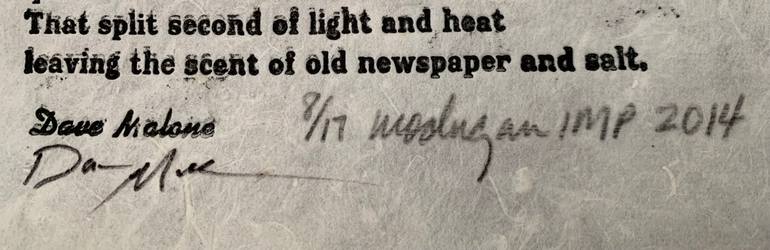 That split second of light and heat
leaving the scent of old newspaper and salt.
Dave Malone
8/17 IMP 2014